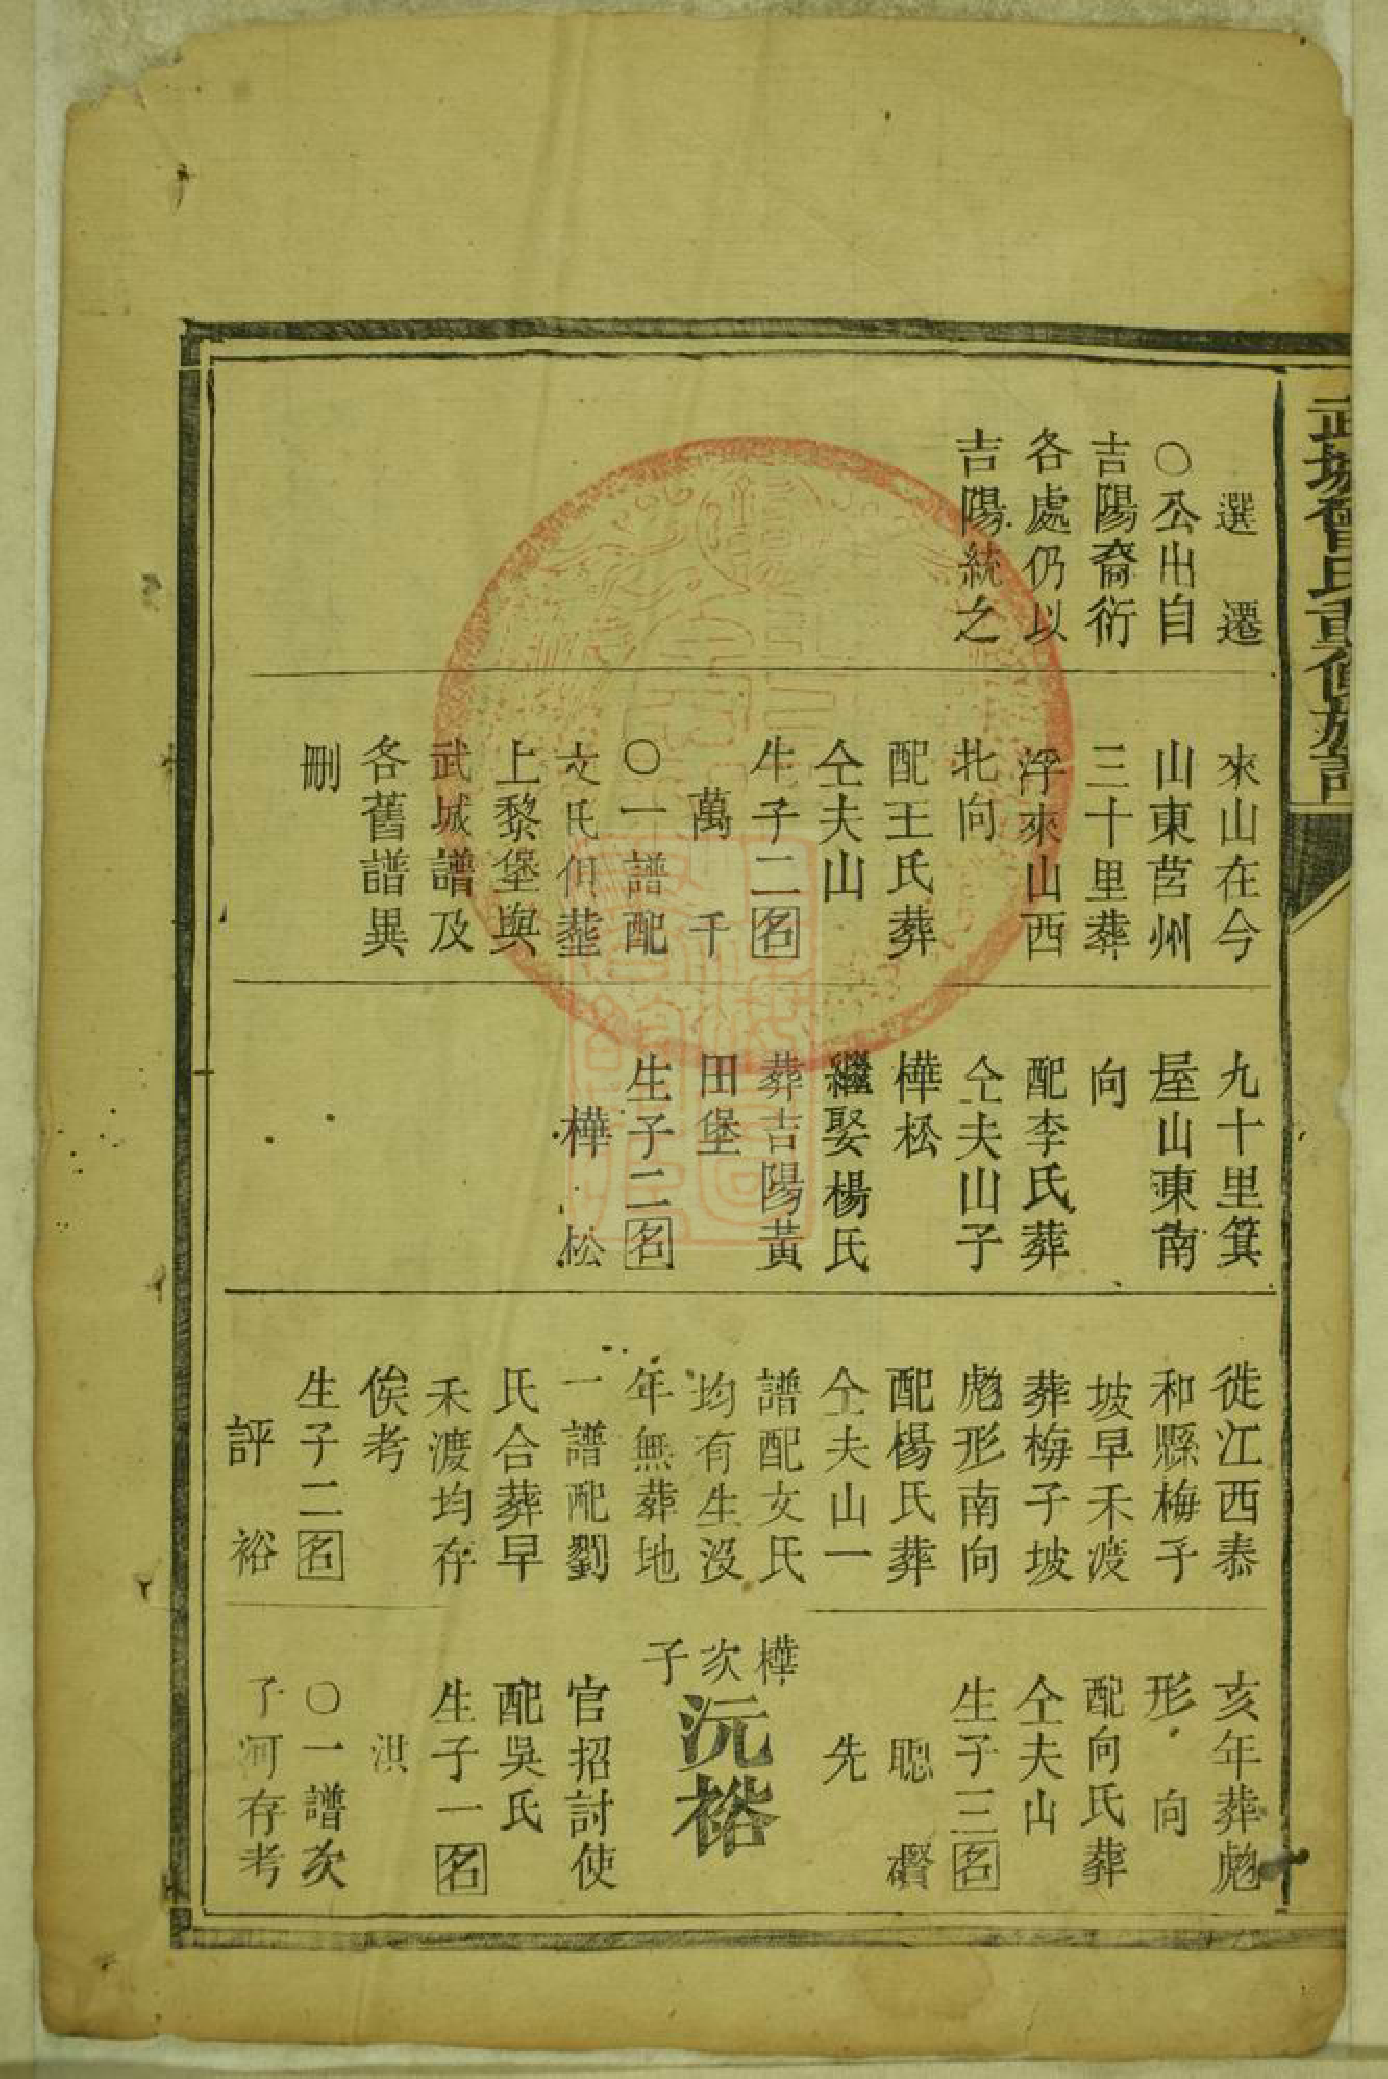 武城曾氏重修族譜
選遷
○公出自
吉陽裔衍
各處仍以
吉陽統之
來山在今
山東莒州
三十里葬
浮來山西
北向
配王氏葬
仝夫山
生子二名
萬千
○一譜配
文氏俱葬
上黎堡與
武城譜及
各舊譜異
刪
九十里箕
屋山東南
向
配李氏葬
仝夫山子
樺松
繼娶楊氏
葬吉陽黃
田堡
生子二名
樺松
徙江西泰
和縣梅子
坡早禾渡
葬梅子坡
彪形南向
配楊氏葬
仝夫山一
譜配文氏
均有生沒
年無葬地
一譜配劉
氏合葬早
禾渡均存
俟考
生子二名
評裕
亥年葬彪
形向
配向氏葬
仝夫山
生子三名
聰
先
樺次子
沅裕
官招討使
配吳氏
生子一名
洪
○一譜次
子河存考